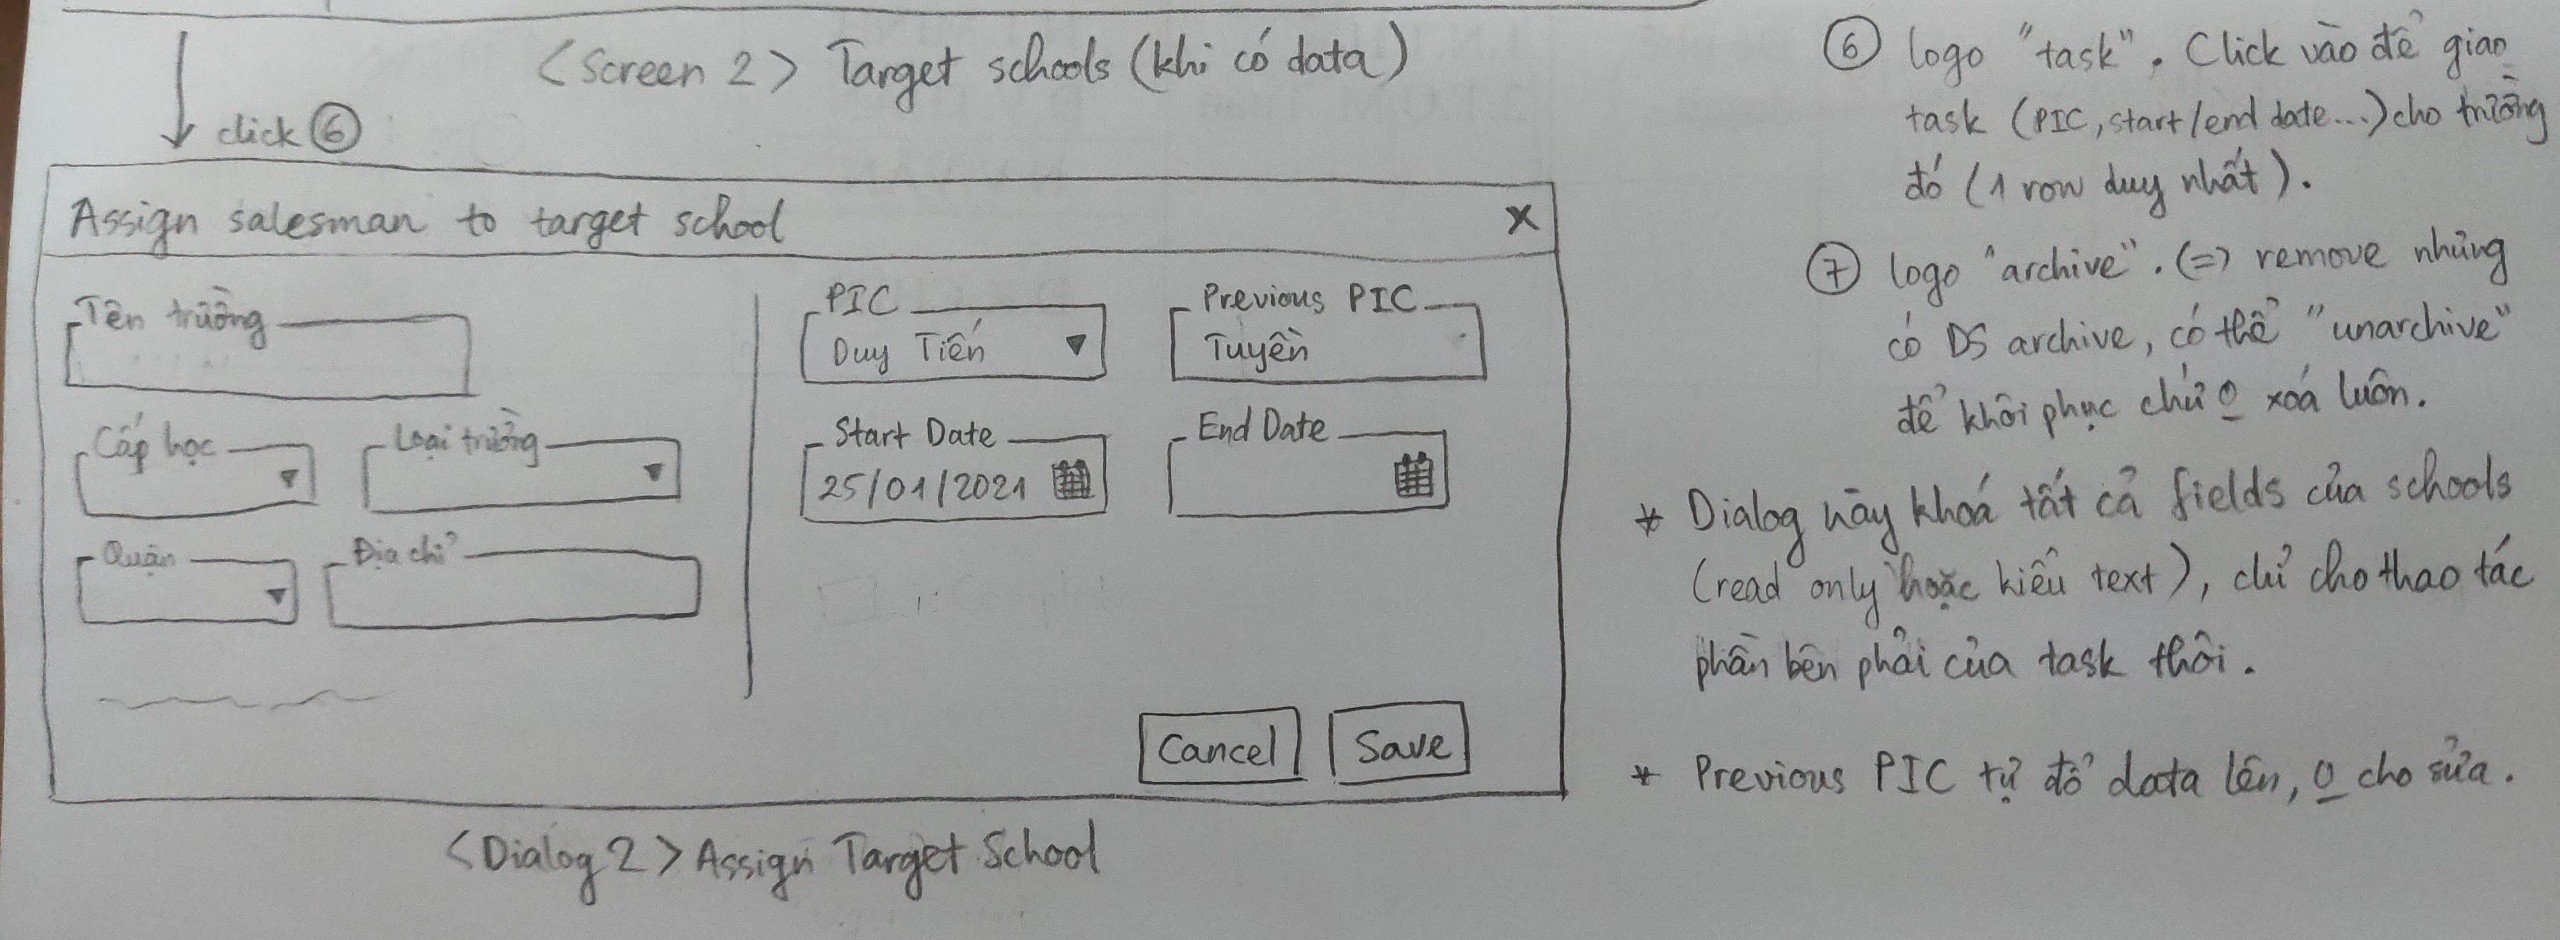 <Screen 2> Target schools (khi có data)
click ⑥
Assign salesman to target school X
Tên trường
Cấp học Loại trường
Quận Địa chỉ
PIC Previous PIC
Duy Tiến Tuyền
Start Date End Date
25/01/2021
Cancel Save
<Dialog 2> Assign Target School
⑥ logo "task". Click vào để giao
task (PIC, start/end date...) cho trường
đó (1 row duy nhất).
⑦ logo "archive". (=) remove nhưng
có DS archive, có thể "unarchive"
để khôi phục chứ 0 xoá luôn.
* Dialog này khoá tất cả fields của schools
(read only hoặc kiểu text), chỉ cho thao tác
phần bên phải của task thôi.
* Previous PIC tự đổ data lên, 0 cho sửa.